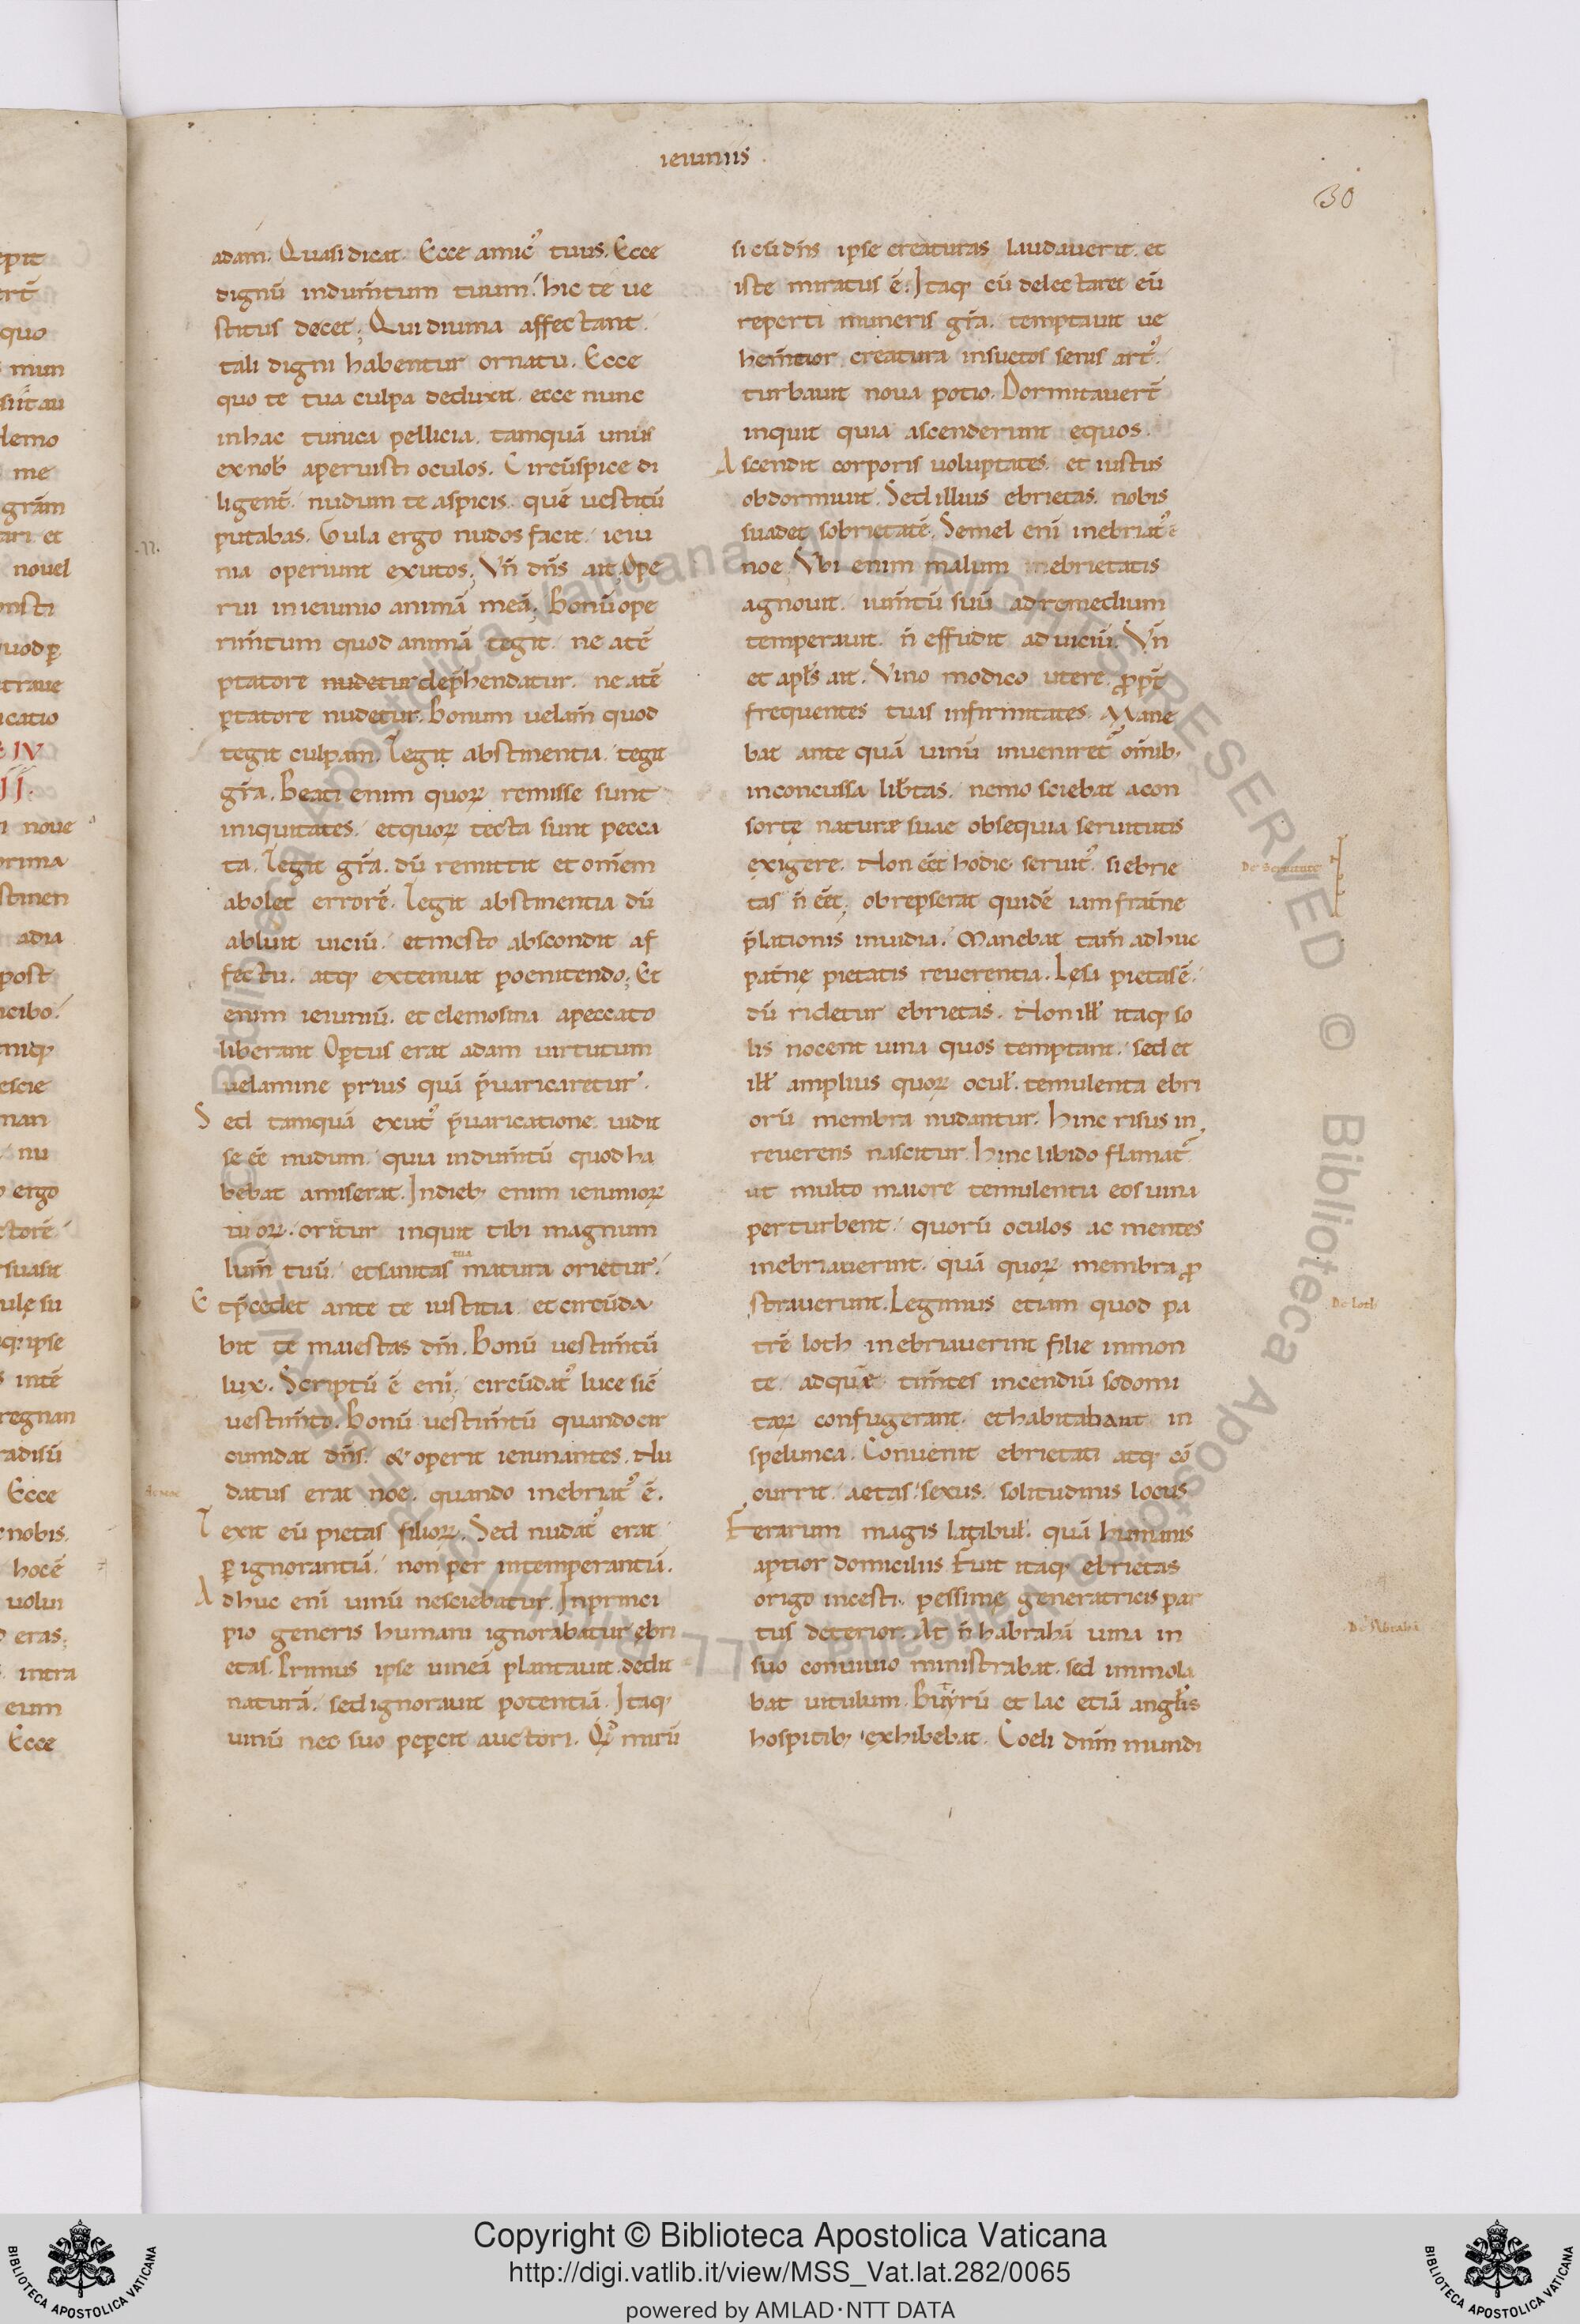 ieiuniis
30
adam. Quasi dicat. Ecce amicꝰ tuus. Ecce
dignū indum̄tum tuum. hic te ue
stitus decet; Qui diuina affectant.
tali digni habentur ornatu. Ecce
quo te tua culpa deduxit. ecce nunc
inhac tunica pellicia. tamquā unus
exnob̄ aperuisti oculos. Circūspice di
ligent̄. nudum te aspicis. quē uestitū
putabas. Gula ergo nudos facit. ieiu
nia operiunt exutos; Vn̄ dn̄s ait. Ope
rui inieiunio animā meā; Bonū ope
rim̄tum quod animā tegit. ne atē
ptatore nudetur dep̄hendatur. ne atē
ptatore nudetur. Bonum uelam̄ quod
tegit culpam. Tegit abstinentia. tegit
gr̄a. Beati enim quoꝝ remisse sunt
iniquitates. etquoꝝ tecta sunt pecca
ta. Tegit gr̄a. dū remittit et om̄em
abolet errorē. Tegit abstinentia dū
abluit uiciū. etmesto abscondit af
fectu. atq; extenuat poenitendo; Et
enim ieiuniū. et elemosina apeccato
liberant. Optus erat adam uirtutum
uelamine prius quā p̄uaricaretur.
Sed tamquā exutꝰ p̄uaricatione. uidit
se eē nudum. quia indum̄tū quod ha
bebat amiserat. Indieb; enim ieiunioꝝ
tuoꝝ. oritur inquit tibi magnum
tua
lum̄ tuū. etsanitas matura orietur.
Et p̄cedet ante te iustitia. et circūda
bit te maiestas dn̄i. Bonū uestim̄tū
lux. Scriptū ē eni. circūdatꝰ luce sic̄
uestim̄to. Bonū uestim̄tū quando cir
cumdat dn̄s. & operit ieiunantes. Nu
datus erat noe. quando inebriatꝰ ē.
Texit eū pietas filioꝝ. Sed nudatꝰ erat
ꝑ ignorantiā. non per intemperantiā.
Adhuc eni uinū nesciebatur. Inprinci
pio generis humani ignorabatur ebri
etas. Primus ipse uineā plantauit. dedit
naturā. sed ignorauit potentiā. Itaq;
uinū nec suo peꝑcit auctori. Qd̓ mirū
si c̄si dn̄s ipse creaturas laudauerit. et
iste miratus ē. Itaq; cū delectaret eū
reperti muneris gr̄a. temptauit ue
hem̄tior creatura insuetos senis artꝰ.
turbauit noua potio. Dormitauer̄t
inquit quia ascenderunt equos.
Ascendit corporis uoluptates. et iustus
obdormiuit. Sed illius ebrietas. nobis
suadet sobrietatē. Semel eni inebriatꝰ ē
noe. Vbi enim malum inebrietatis
agnouit. uim̄tū suū adremedium
temperauit. n̄ effudit ad uiciū. Vn̄
et apl̄s ait. Vino modico utere. ꝓpt̄
frequentes tuas infirmitates. Mane
bat ante quā uinū inueniret̄ omīb;
inconcussa lib̄tas. nemo sciebat acon
sortę naturæ suae obsequia seruitutis
exigere. Non eēt hodie seruitꝰ. si ebrie
tas n̄ eēt. obrepserat quidē iam frat̄ne
p̄lationis inuidia. Manebat tam̄ adhuc
pat̄nę pietatis reuerentia. Lęsa pietas ē.
dū ridetur ebrietas. Non ill̄ itaq; so
lis nocent uina quos temptant. sed et
ill̄ amplius quoꝝ ocul̄. temulenta ebri
orū membra nudantur. Hinc risus in
reuerens nascitur. Hinc libido flamat̄
ut multo maiore temulentia eos uina
perturbent. quorū oculos ac mentes
inebriauerint. quā quoꝝ membra ꝓ
strauerunt. Legimus etiam quod pa
trē loth inebriauerint filie inmon
te adquē tim̄tes incendiū sodomi
taꝝ confugerant. ethabitabant in
spelunca. Conuenit ebrietati atq; cō
currit. aetas. sexus. solitudinis locus.
Ferarum magis latibul̄. quā humanis
aptior domiciliis. Fuit itaq; ebrietas
origo incesti. pessimę generatricis par
tus deterior. At n̄ habrahā uina in
suo conuiuio ministrabat. sed immola
bat uitulum. Butyrū et lac etiā angl̄is
hospitib; exhibebat. Coeli dnm̄ mundi
De seruitute
De Loth
De Abrahā
de noe
Copyright © Biblioteca Apostolica Vaticana
http://digi.vatlib.it/view/MSS_Vat.lat.282/0065
powered by AMLAD·NTT DATA